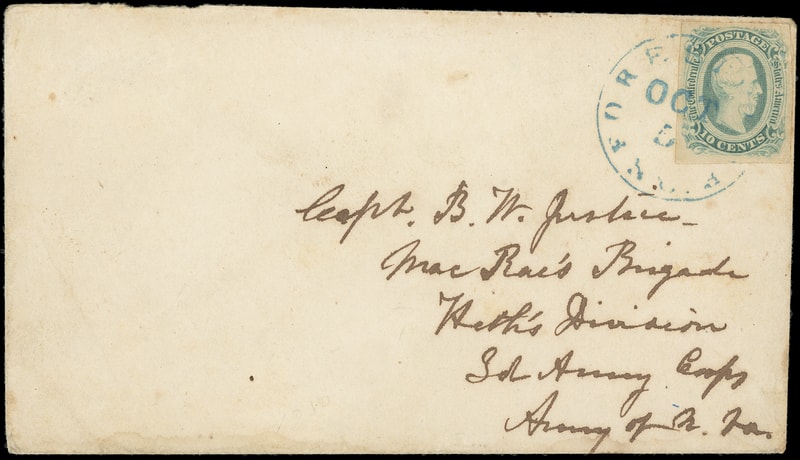 POSTAGE
The Confederate States America
10 CENTS
OCT
5
Capt. B. W. Justice
Mac Rae's Brigade
Heth's Division
3d Army Corps
Army of N. Va.